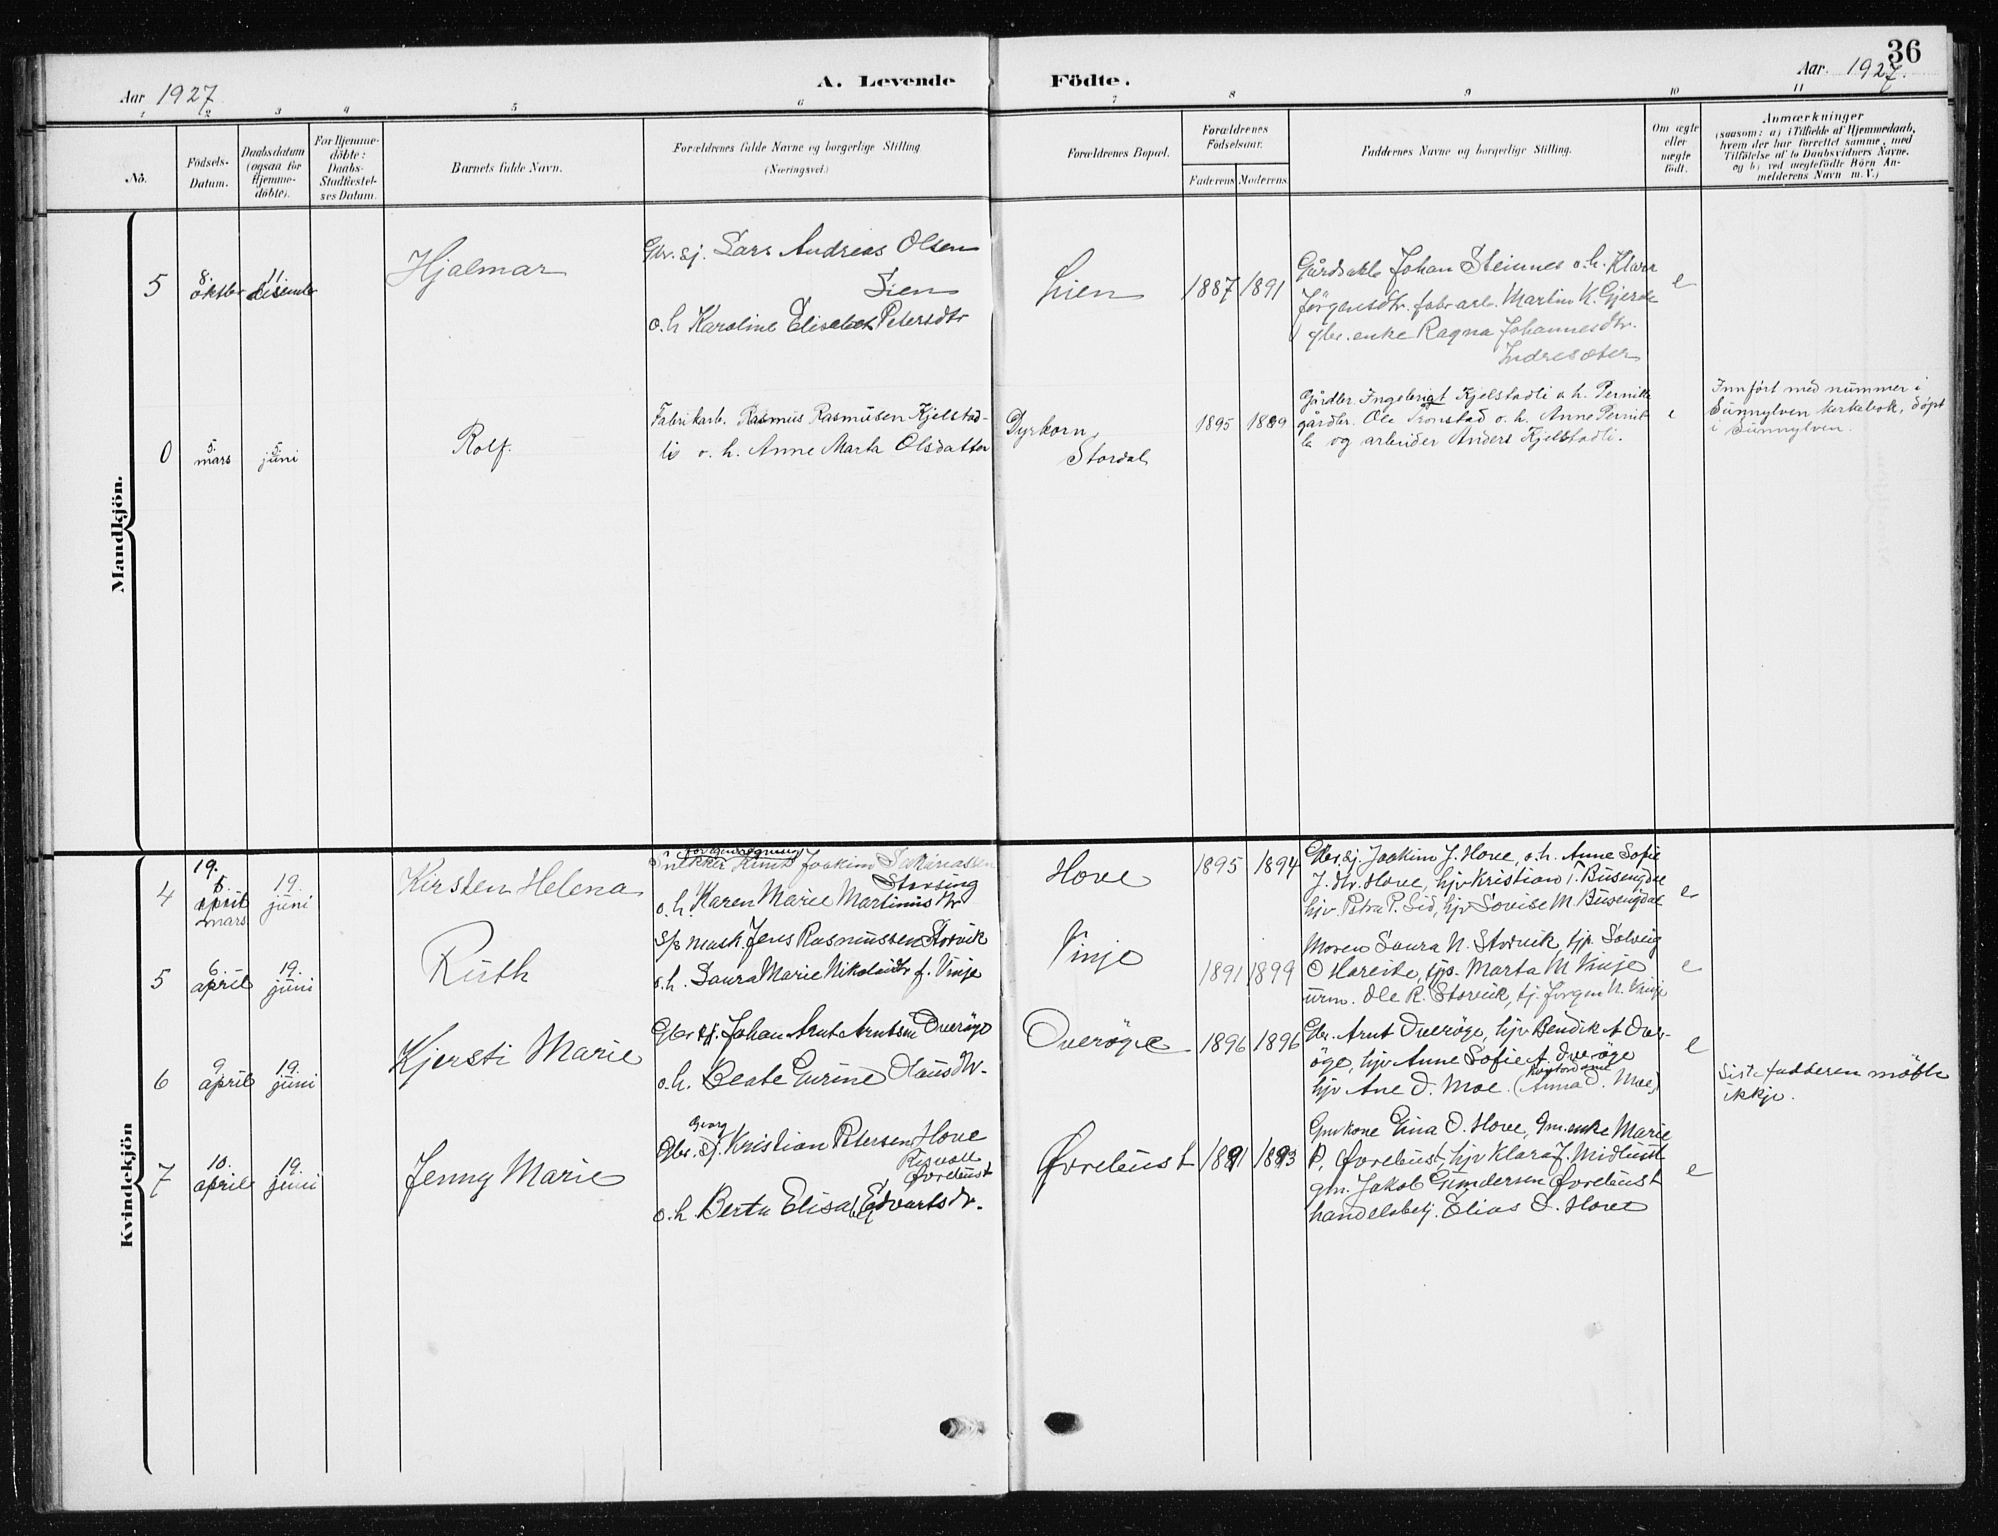 36
Aar 1927.
A. Levende Födte.
Aar. 1927.
1 2 3 4 5 6 7 8 9 10 11
No.
Födsels-
Datum.
Daabsdatum
(ogsaa for
Hjemme-
döbte).
For Hjemme-
döbte:
Daabs-
Stadfæstel-
ses Datum.
Barnets fulde Navn.
Forældrenes fulde Navne og borgerlige Stilling
(Næringsvei.)
Forældrenes Bopæl.
Forældrenes
Födselsaar.
Faderens Moderens
Faddernes Navne og borgerlige Stilling.
Om ægte
eller
uægte
födt.
Anmærkninger
(saasom: a) i Tilfælde af Hjemmedaab,
hvem der har forrettet samme, med
Tilföielse af to Daabsvidners Navne.
og b) ved uægtefödte Börn An-
melderens Navn m. V.)
Mandkjön.
5
8.
oktbr
11
Hjalmar
Gbr. sj. Lars Andreas Olsen
Lien
o.h Karoline Elisabet Petersdtr
Lien
1887 1891
Johan Steinnes o.h. Klara
Jørgensdtr. fabr arb. Martin K. Gjerde
gbr. enke Ragna Johannesdtr.
Indresæter
e
0
5.
mars
5.
juni
Rolf.
Fabrikarb. Rasmus Rasmusen Kjelstad-
li o. h. Anne Marta Olsdatter
Dyrkorn,
Stordal
1895 1889
Gårdbr. Ingebrigt Kjelstadli o. h. Pernille
gårdbr. Ole Tronstad o. h. Anne Pernil-
le og arbeider Anders Kjelstadli.
e
Innført med nummer i
Sunnylven kerkebok, døpt
i Sunnylven.
Kvindekjön
4
19.
april
mars
19.
juni
Kirsten Helena
Snekker Knut Joakim
Stavseng
o.h. Karen Marie Martinusdtr
Hove
1895 1894
Gbr. sj. Joakim J. Hove, o.h. Anne Sofie
J. dtr. Hove, hjv Kristian T. Busengdal
hjv. Petra P. Lid, hjv Lovise M. Busengdal
e
5
6.
april
19.
juni
Ruth
mask. Jens Rasmussen Storvik
o.h. Laura Marie Nikolaidtr f. Vinje
Vinje
1891 1899
Moren Laura N. Storvik, tjp. Solveig
O Hareide, tjp. Marta M Vinje
urm. Ole R. Storvik, tj. Jørgen N. Vinje
e
6
9
april
19.
juni
Kjersti Marie
Gbr sj. Johan Arnt Arntsen Overøye
o.h. Beate Gurine Clausdtr.
Overøye
1896 1896
Gbr. Arnt Overøye, hjv Bendik A Over-
øye, hjv Anne Sofie A. Overøye
hjv Ane D. Moe. (Anna D. Moe)
e
Siste fadderen møtte
ikkje.
7
10.
april
19.
juni
Jenny Marie
Georg
Gbr. sj. Kristian Petersen Hove
Øvrebust
o.h. Berta Elisabet Edvartsdtr.
Øvrebust
1891 1893
Gm kone Eina O. Hove, Gm. enke Marie
P. Øvrebust, hjv Klara J. Midtust
gbr. Jakob Gundersen Øvrebust
handelsbetj. Elias L. Hovet
e